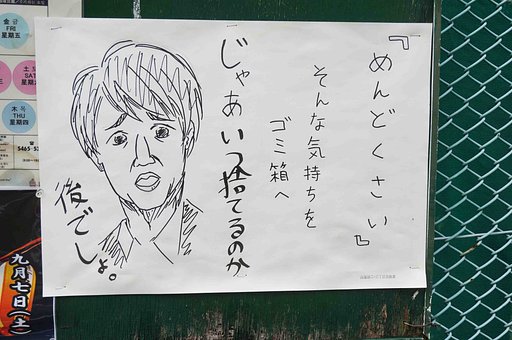 『めんどくさい』
そんな気持ちを
ゴミ箱へ
じゃあいつ捨てるのか
後でしょ。
金 금
FRI
星期五
土 토
SAT
星期六
木 목
THU
星期四
九月七日(土)